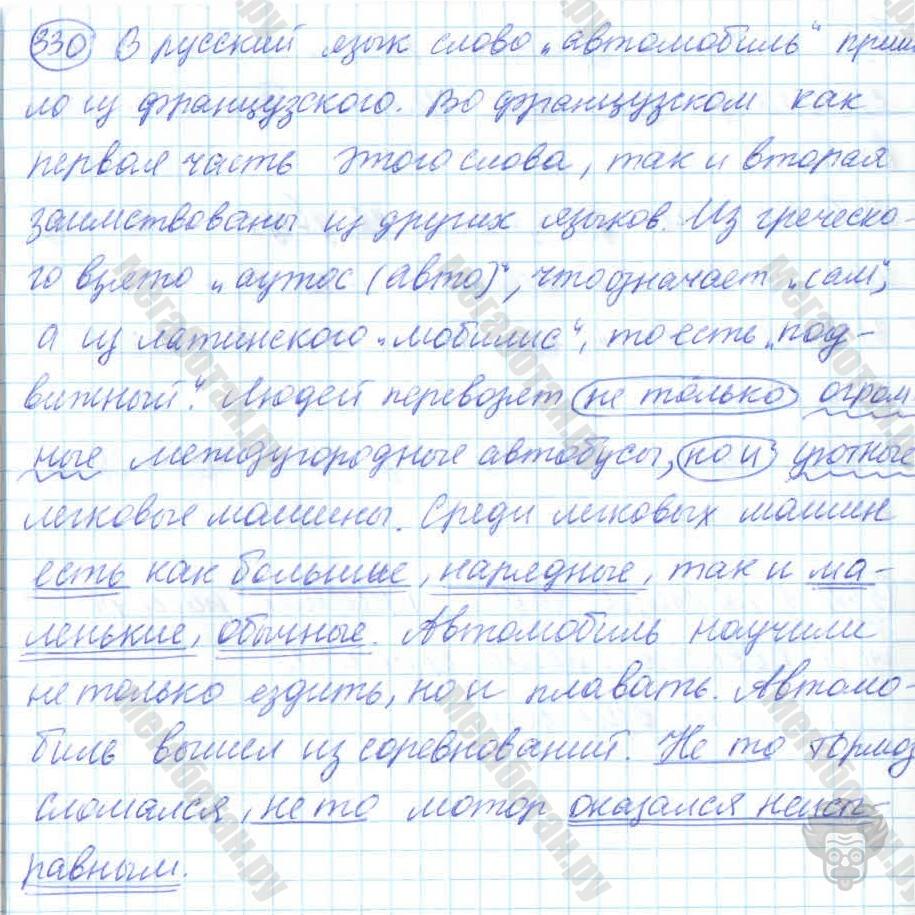 330 В русский язык слово „автомобиль“ приш
ло из французского. Во французском как
первая часть этого слова, так и вторая
заимствованы из других языков. Из греческо-
го взято „аутос (авто)“, что означает „сам“,
а из латинского „мобилис“, то есть „под-
вижный“. Людей перевозят не только огром
ные междугородные автобусы, но и уютные
легковые машины. Среди легковых машин
есть как большие, нарядные, так и ма-
ленькие, обычные. Автомобиль научили
не только ездить, но и плавать. Автомо-
биль вышел из соревнований. Не то тормоз
сломался, не то мотор оказался неисп-
равным.
Мегаботан.ру